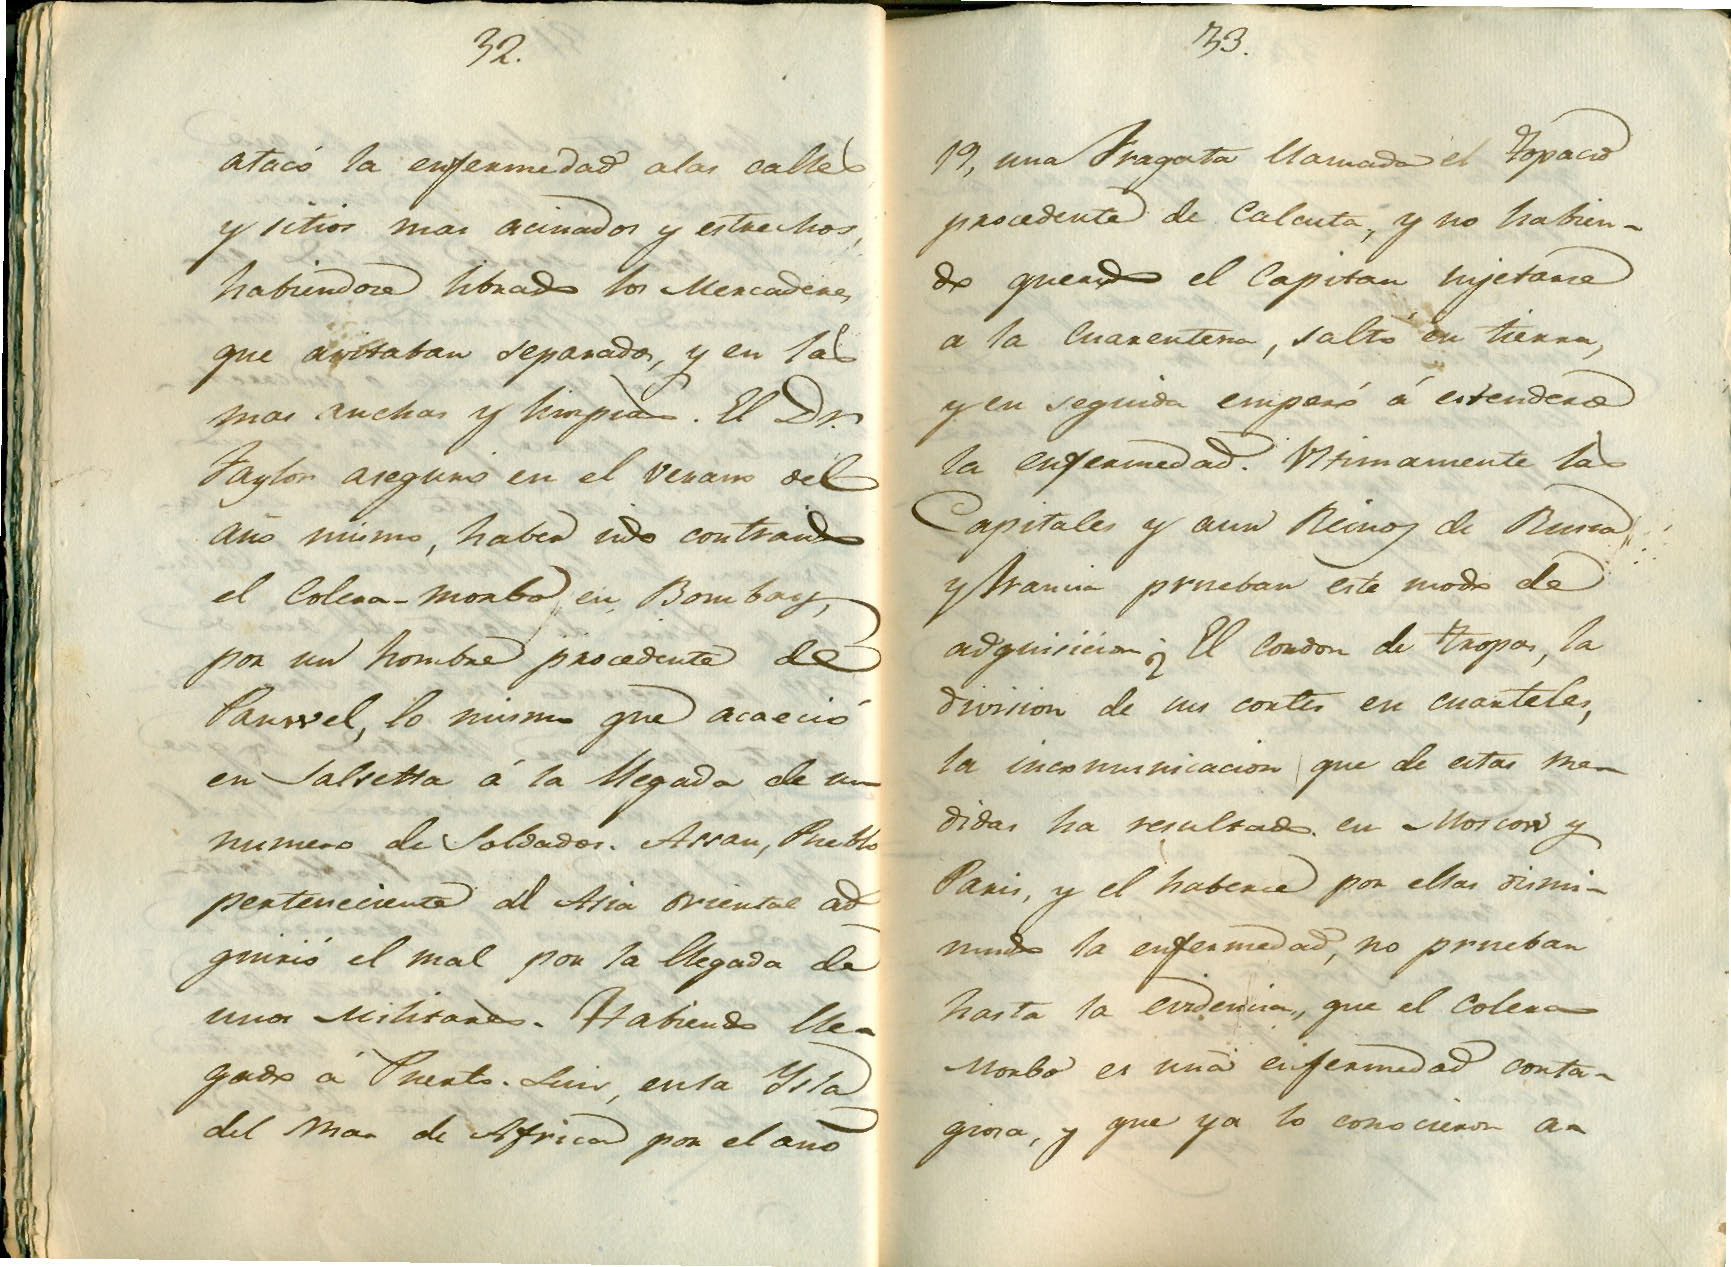 32.
atacó la enfermedad alas calles
y sitios mas acinados y estrechos,
habiendose librado los Mercaderes
que avitaban separados, y en las
mas anchas y limpias. El Dr.
Taylor aseguró en el verano del
año mismo, haber sido contraido
el Colera-morbo en Bombay,
por un hombre procedente de
Panwel, lo mismo que acaeció
en Salsetta á la llegada de un
numero de Soldados. Assan, Pueblo
perteneciente al Asia oriental ad
quirió el mal por la llegada de
unos Militares. Habiendo lle-
gado á Puerto-Luis, en la Ysla
del Mar de Africa por el año
33.
19, una Fragata llamada el Topacio
procedente de Calcuta, y no habien-
do querido el Capitan sujetarse
a la Cuarentena, saltó en tierra,
y en seguida empesó á estenderse
la enfermedad. Ultimamente las
Capitales y aun Reinos de Rusia
y Francia prueban este modo de
adquisicion; ¿El cordon de tropas, la
division de sus cortes en cuarteles,
la incomunicacion que de estas me-
didas ha resultado en Moscow y
Paris, y el haberse por ellas dismi-
nuido la enfermedad, no prueban
hasta la evidencia, que el Colera
Morbo es una enfermedad conta-
giosa, y que ya lo conocieron an-